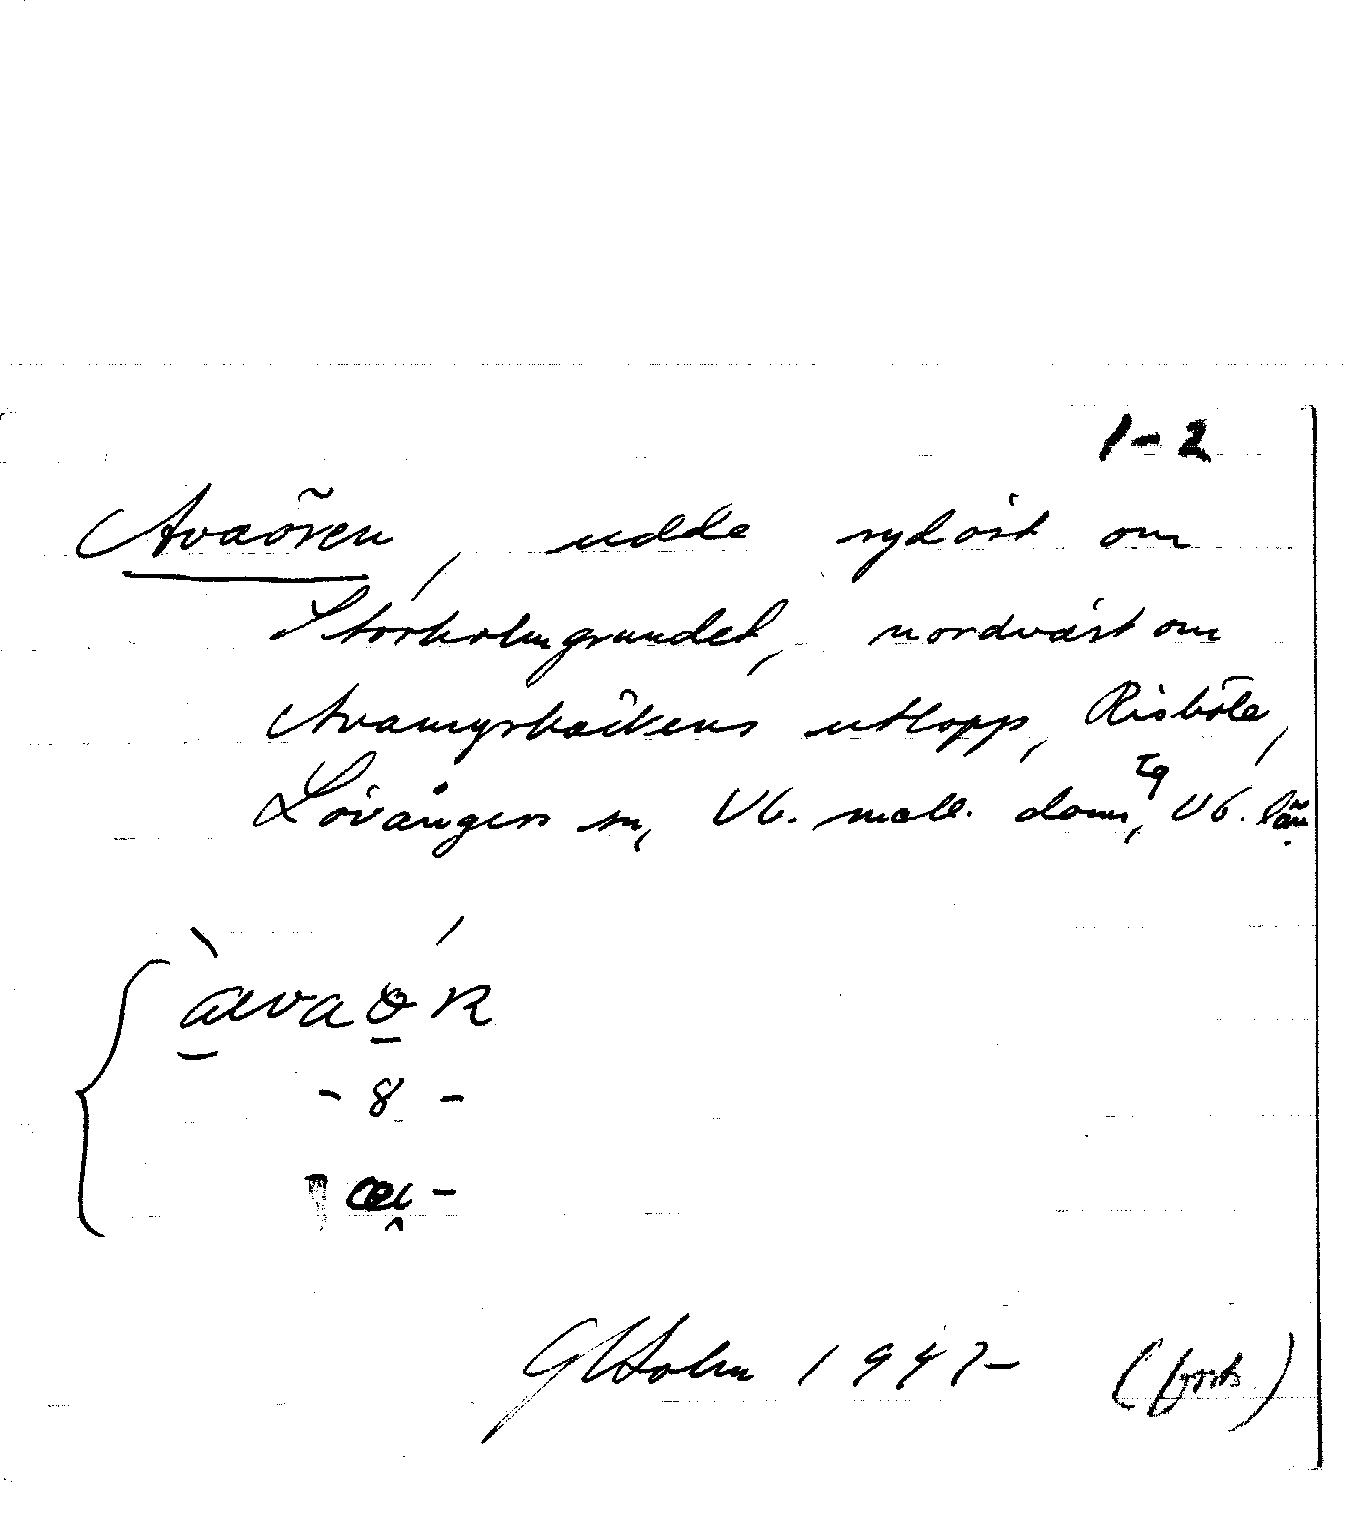 1-2
Avaören, udde sydöst om
Storholmgrundet, nordväst om
Avamyrbäckens utlopp, Risböle,
Lövångers sn, Vb. mell. doms tg, Vb. län.
- 8 -
GHolm 1947- (forts)